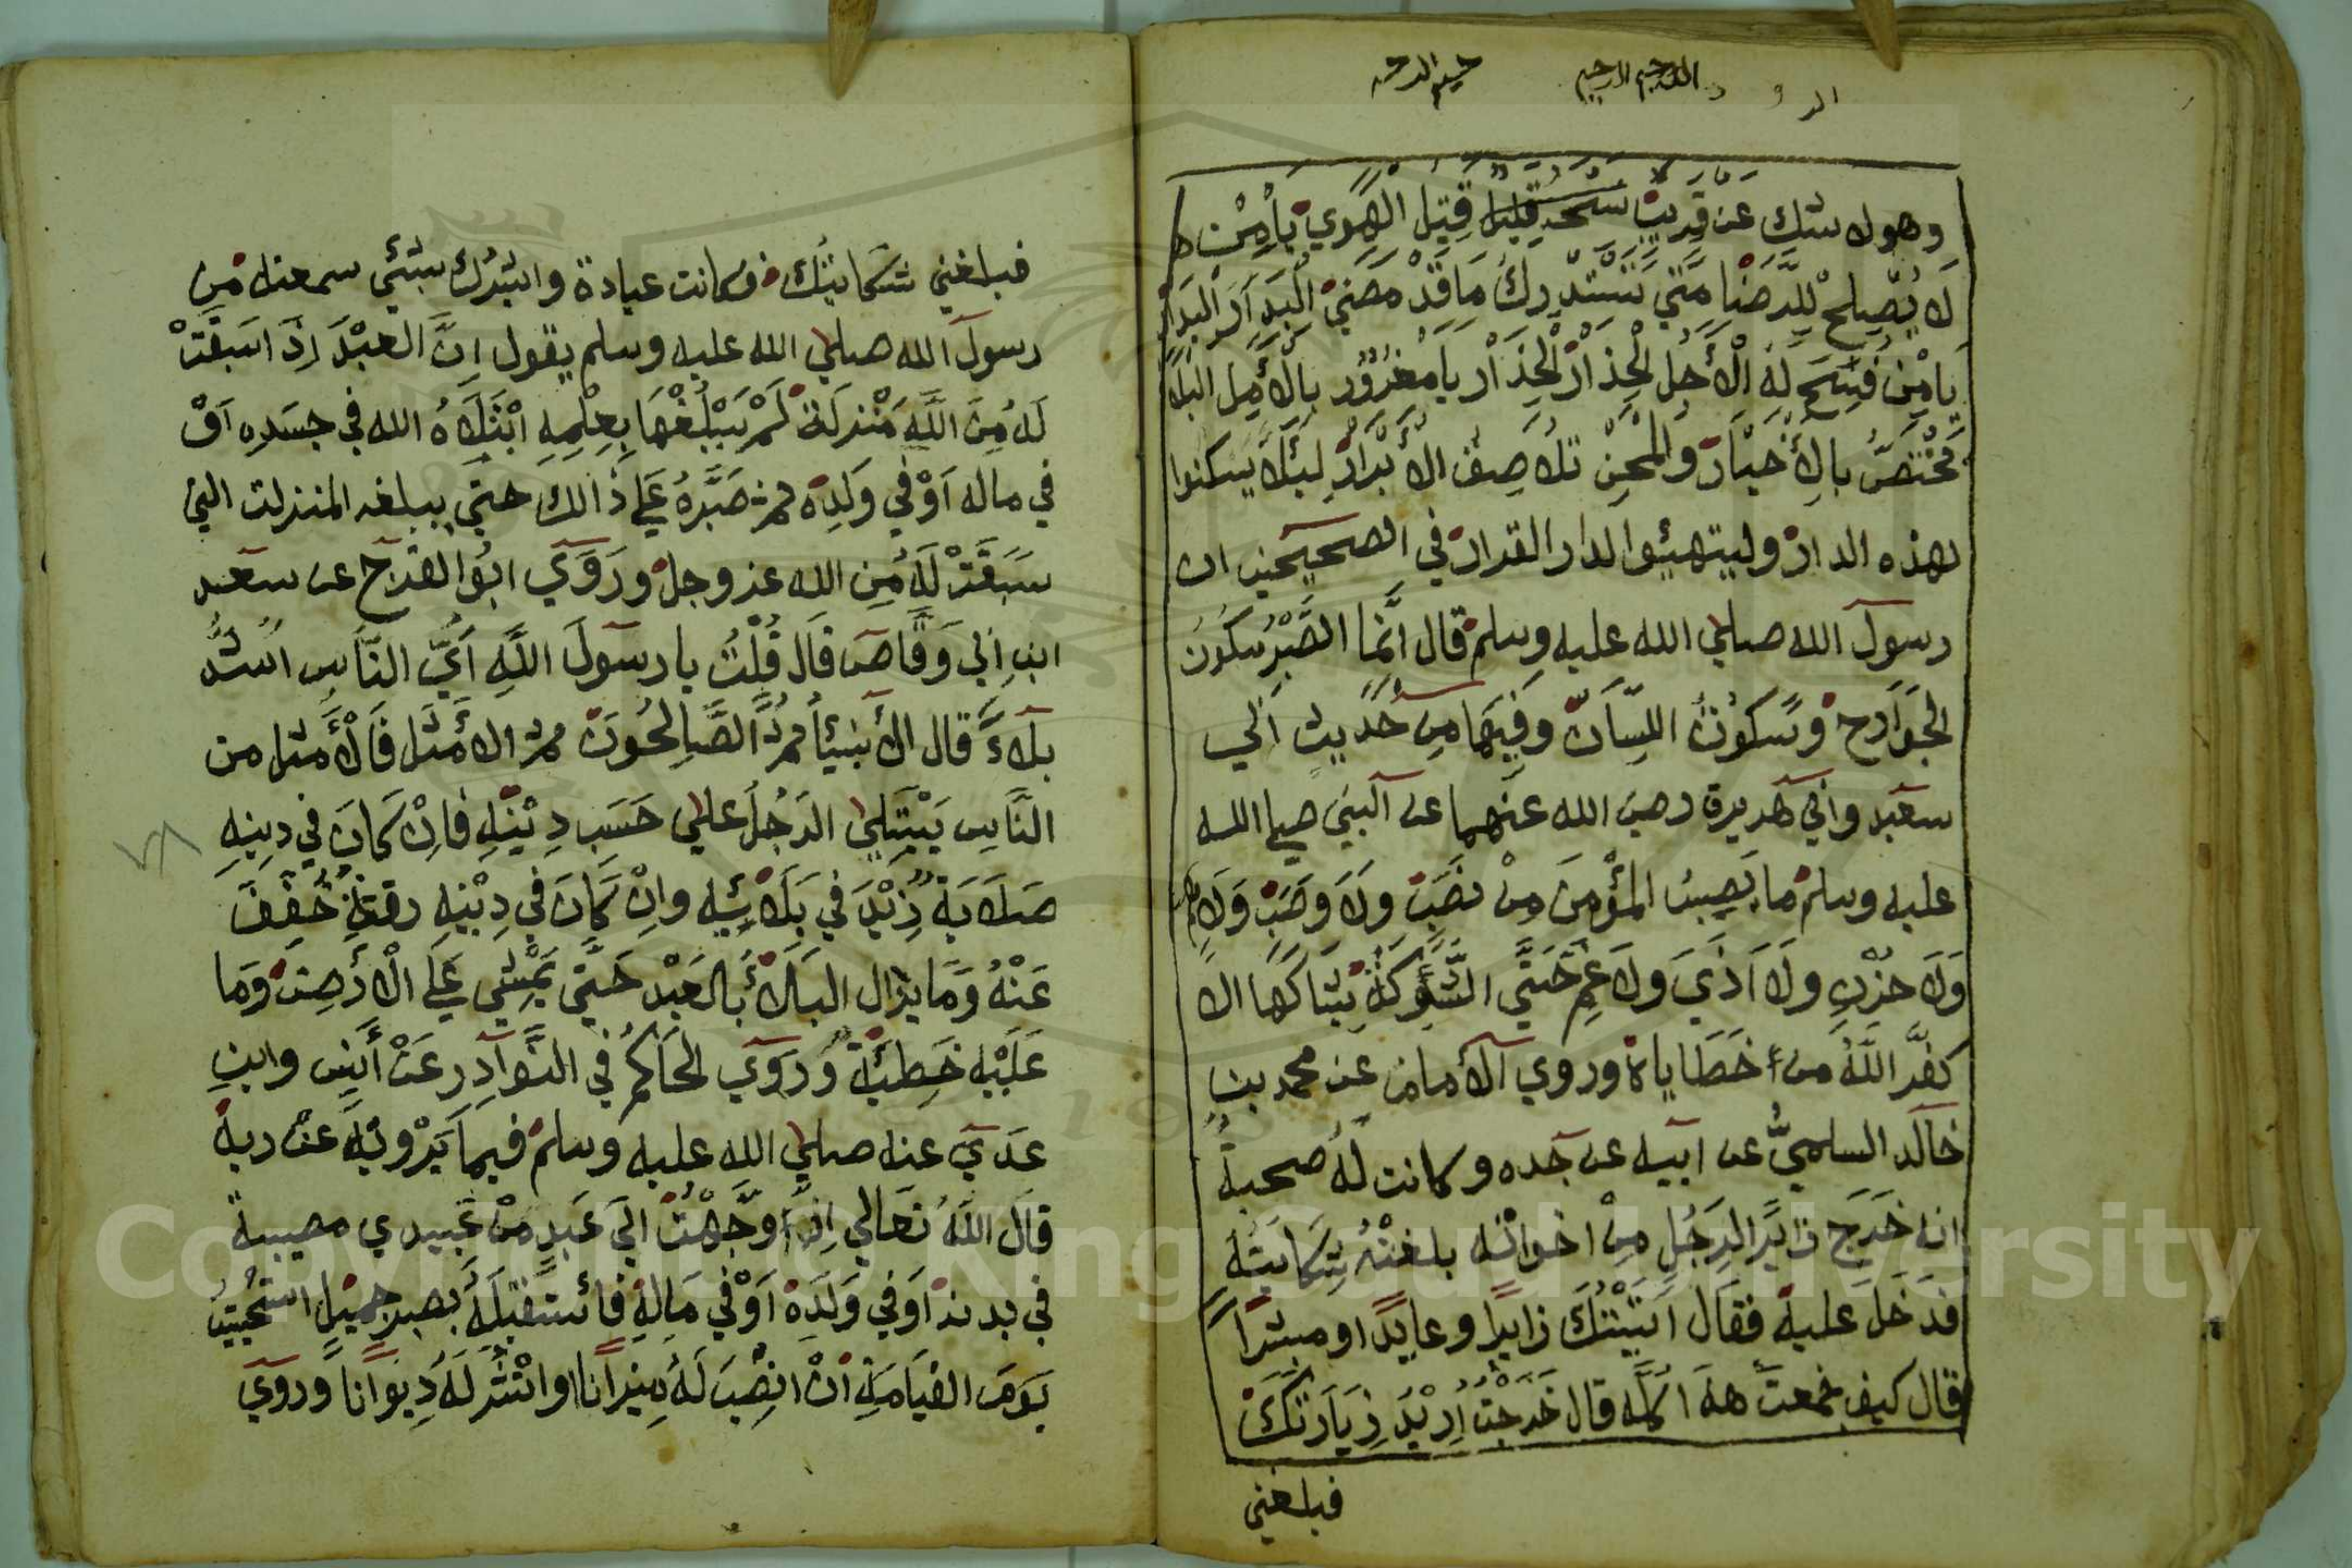 الر و د اللرحيم الرحيم حيم الرحمـ
وهولا ستك عن قريب قتيل الهوي يا من
لا يصلح للرضا متي تستدرك ما قد مضي البدار البدار
يا من فسح له الأجل الحذار الحذار يا مغرور بالأمل البلا
مختص بالأخيار والمحن تلاصق الأبرار ليئلا يسكنوا
لهذه الدار وليتهيئوا لدار القرار في الصحيحين ان
رسول الله صلي الله عليه وسلم قال انما الصبر سكون
الجوارح وسكون اللسان وفيهما من حديث ابي
سعيد وابي هريرة رضي الله عنهما عن النبي صلي الله
عليه وسلم ما يصيب المؤمن من نصب ولا وصب ولا هم
ولا حزن ولا اذي ولا غم حتي الشوكة يشاكها الا
كفر الله من خطاياه وروي الأمام عن محمد بن
خالد السلمي عن ابيه عن جده وكانت له صحبة
انه خرج زايرا لرجل من اخوانه بلغته شكايته
فدخل عليه فقال اتيتك زايرا وعايدا ومبشرا
قال كيف جمعت هذا كله قال خرجت اريد زيارتك
فبلغني
فبلغني شكايتك فكانت عيادة وابشرك بشئي سمعته من
رسول الله صلي الله عليه وسلم يقول ان العبد اذا سبقت
له من الله منزلة لم يبلغها بعلمه ابتلاه الله في جسده او
في ماله او في ولده ثم صبره علي ذالك حتي يبلغه المنزلت التي
سبقت له من الله عز وجل وروي ابو الفرج عن سعد
ابن ابي وقاص قال قلت يا رسول الله أي الناس اشد
بلاء قال الأنبيأ ثم الصالحون ثم الأمثل فالأمثل من
الناس يبتلي الرجل علي حسب دينه فان كان في دينه
صلابة زيد في بلائيه وان كان في دينه رقة خفف
عنه وما يزال البلاء بالعبد حتي يمشي علي الأرض وما
عليه خطيئة وروي الحاكم في النوادر عن أنس وابن
عدي عنه صلي الله عليه وسلم فيما يرويه عن ربه
قال الله تعالي اذا وجهت الي عبد من عبيدي مصيبة
في بدنه او في ولده او في ماله فائستقبله بصبر جميل استحييت
يوم القيامة ان انصب له ميزانا او انشر له ديوانا وروي